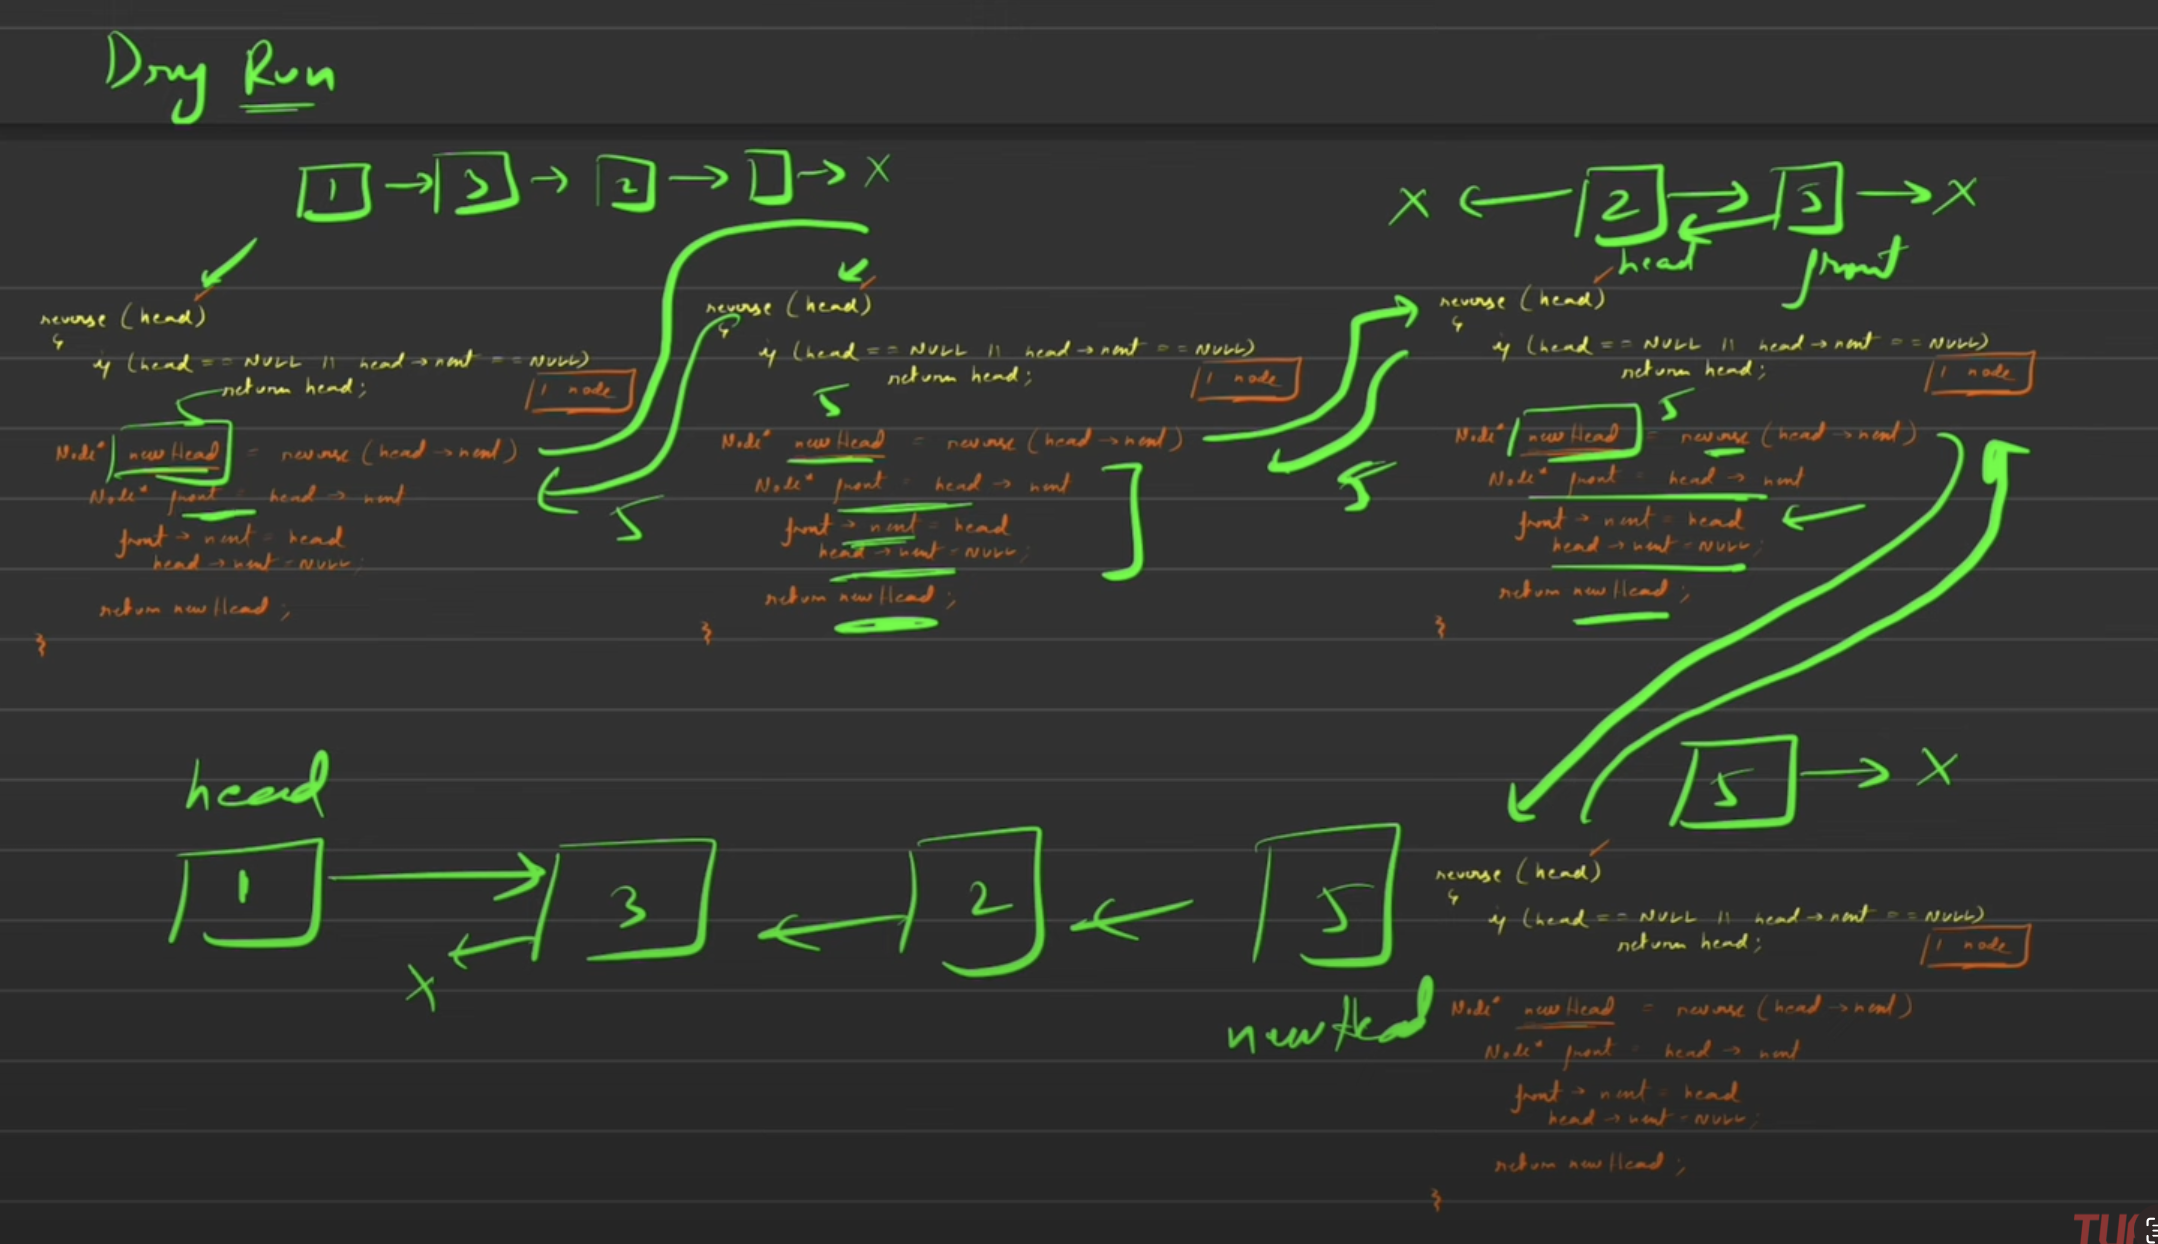 Dry Run
1 → 3 → 2 → → X
X ← 2 → 5 → X
head front
reverse (head)
{
if (head == NULL || head → next == NULL)
return head;
1 node
5
Node* newHead = reverse (head → next)
Node* front = head → next
front → next = head
head → next = NULL;
return newHead;
}
reverse (head)
{
if (head == NULL || head → next == NULL)
return head;
1 node
5
Node* newHead = reverse (head → next)
Node* front = head → next
front → next = head
head → next = NULL;
return newHead;
}
5
reverse (head)
{
if (head == NULL || head → next == NULL)
return head;
1 node
5
Node* newHead = reverse (head → next)
Node* front = head → next
front → next = head
head → next = NULL;
return newHead;
}
head
1 → 3 ← 2 ← 5
X
newHead
5 → X
reverse (head)
{
if (head == NULL || head → next == NULL)
return head;
1 node
Node* newHead = reverse (head → next)
Node* front = head → next
front → next = head
head → next = NULL;
return newHead;
}